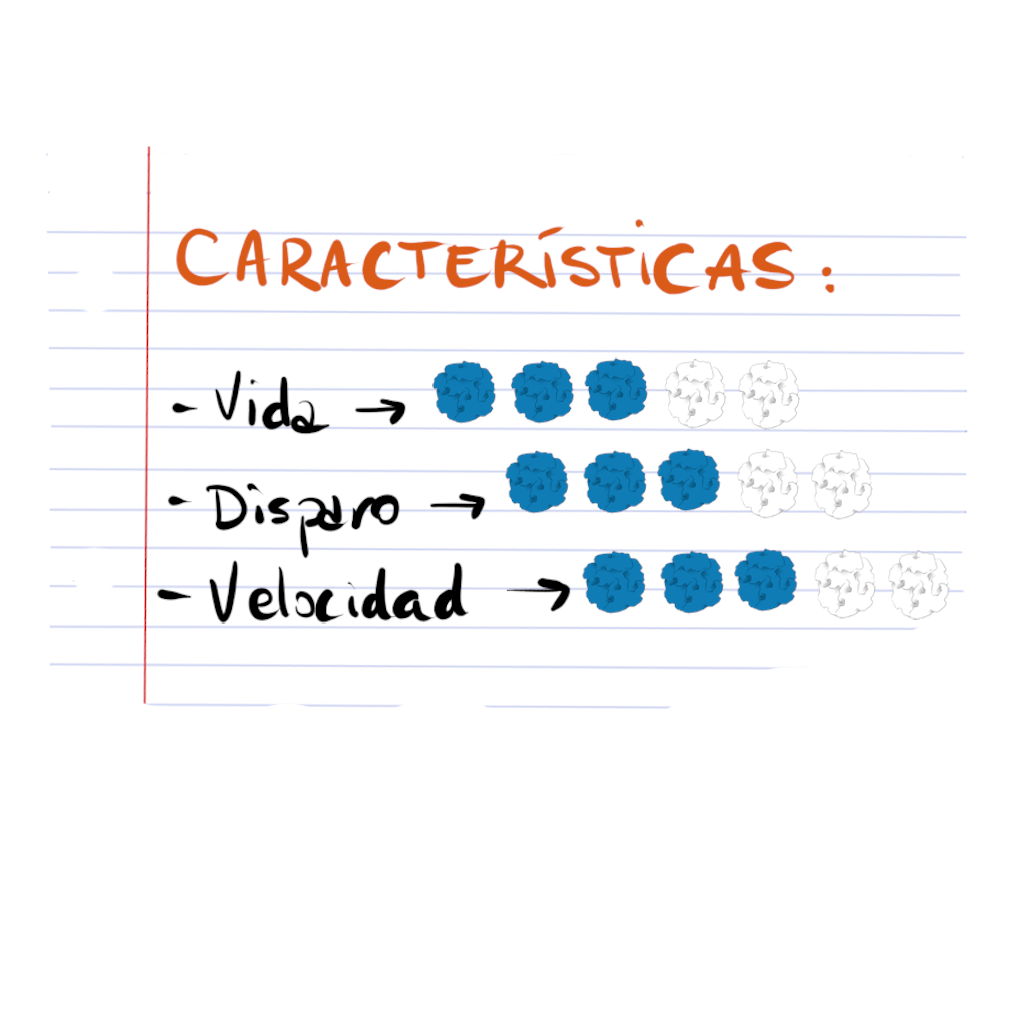 CARACTERÍSTICAS:
- Vida →
- Disparo →
- Velocidad →